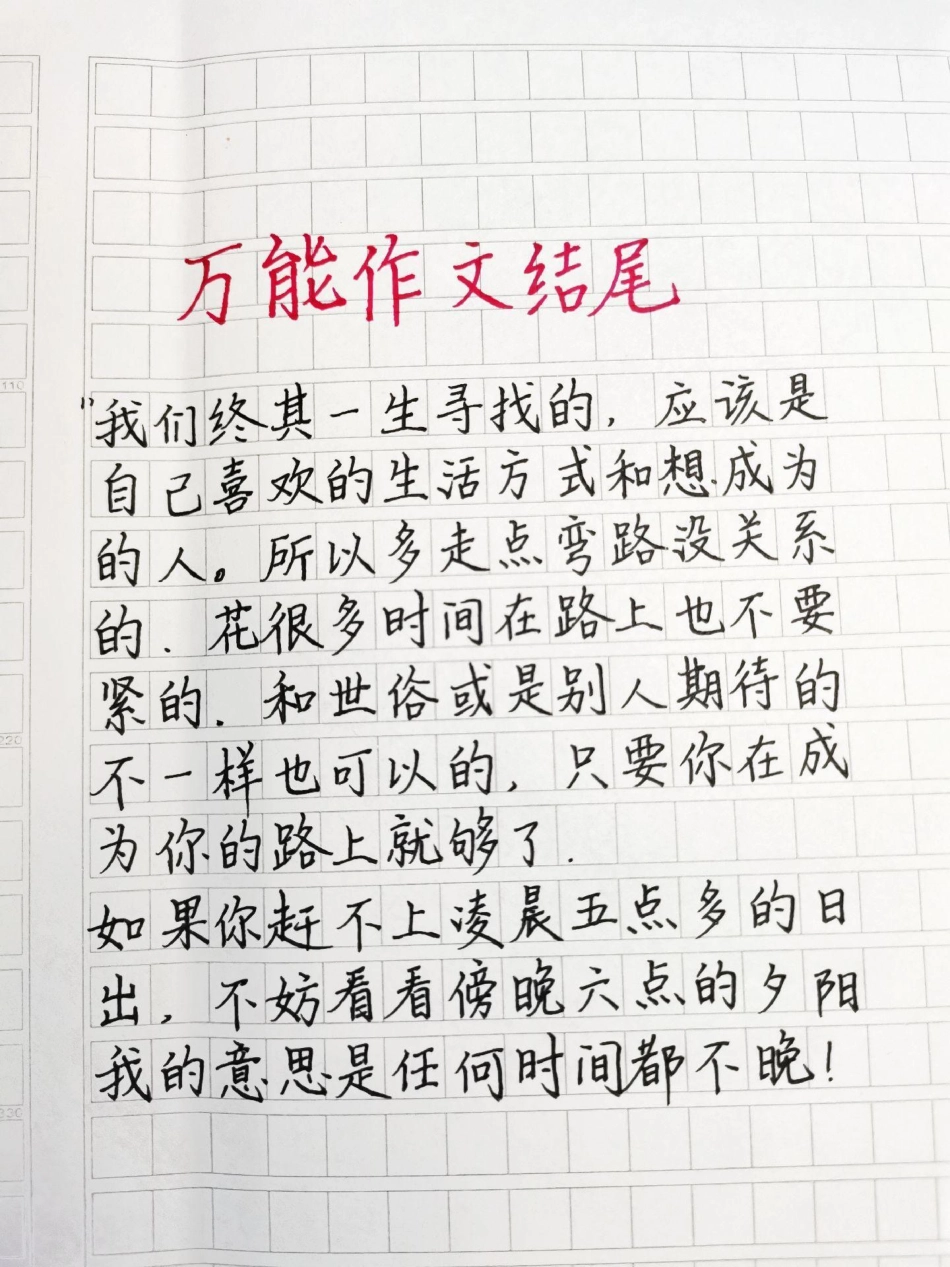 万能作文结尾
110
"我们终其一生寻找的，应该是
自己喜欢的生活方式和想成为
的人。所以多走点弯路没关系
的．花很多时间在路上也不要
紧的．和世俗或是别人期待的
220
不一样也可以的，只要你在成
为你的路上就够了．
如果你赶不上凌晨五点多的日
出，不妨看看傍晚六点的夕阳
我的意思是任何时间都不晚！
330